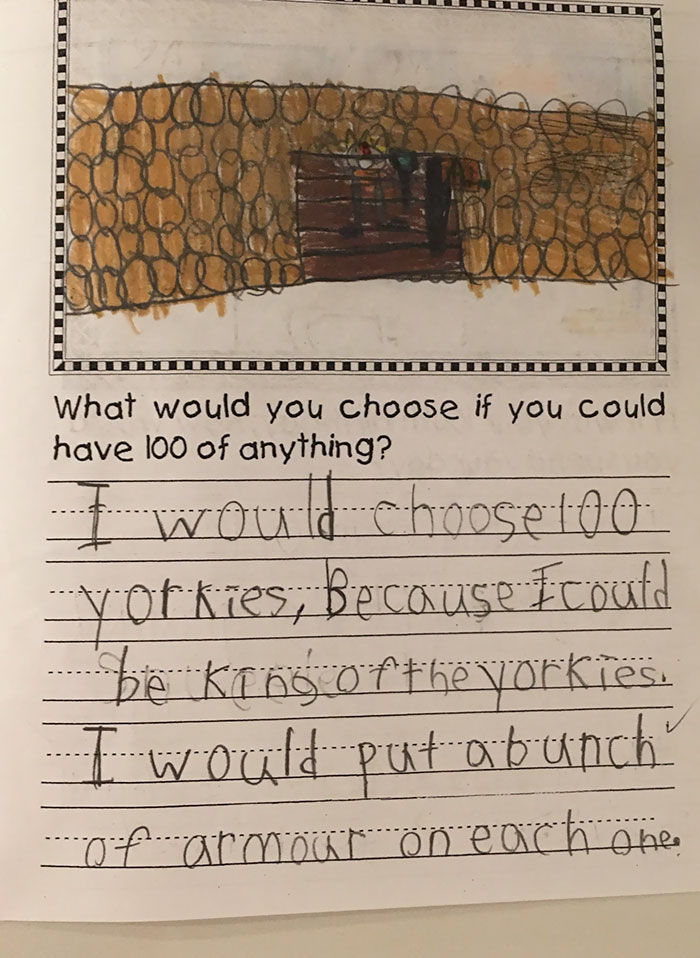 What would you choose if you could
have 100 of anything?
I would choose 100
yorkies, Because I could
be king of the yorkies.
I would put a bunch
of armour on each one.